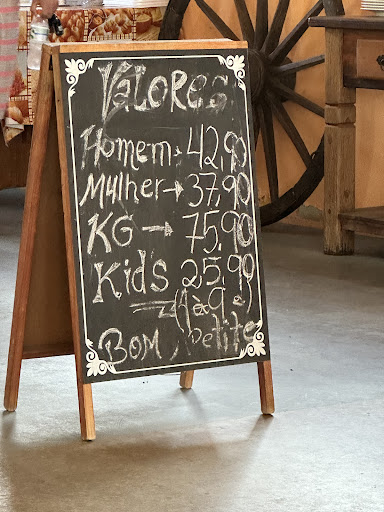 Valores
Homem → 42,90
Mulher → 37,90
KG → 75,90
Kids 25,99
(4 à 9)
Bom Apetite